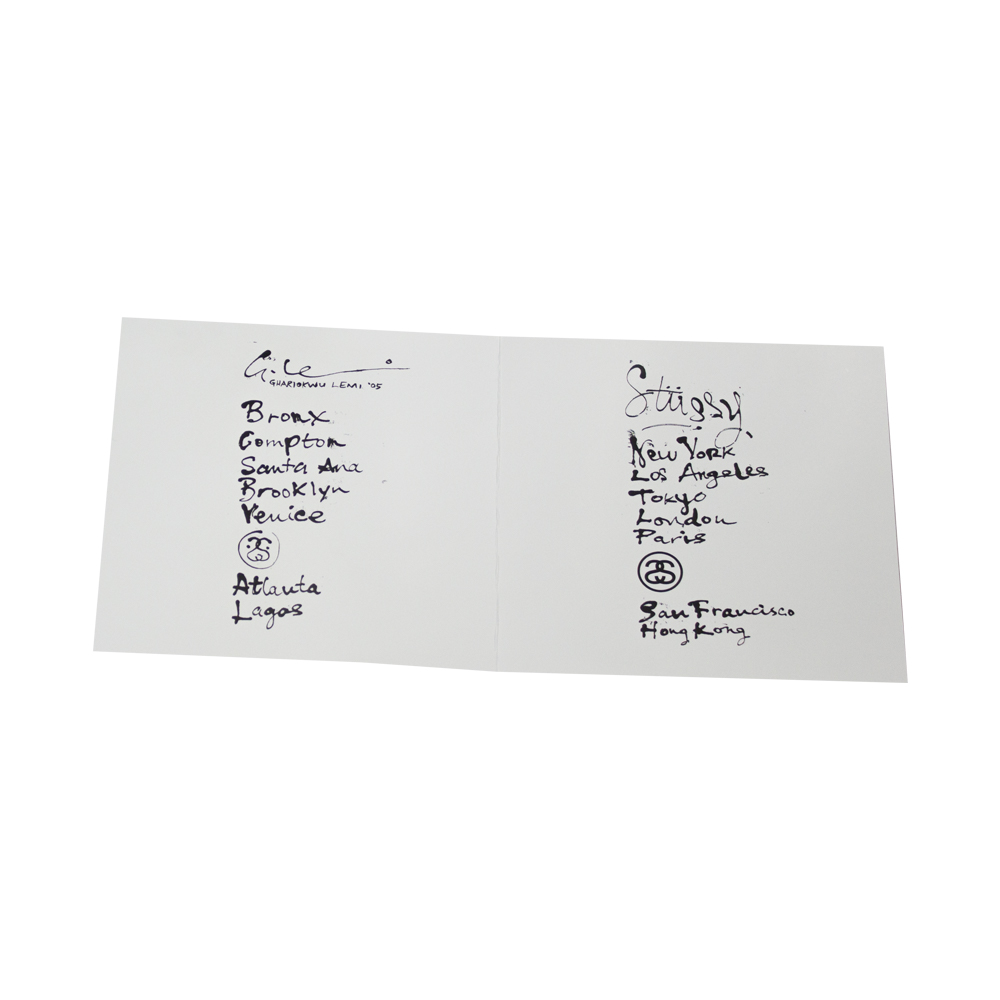 G. Le
GHARIOKWU LEMI '05
Bronx
Compton
Santa Ana
Brooklyn
Venice
Atlanta
Lagos
Stüssy
New York
Los Angeles
Tokyo
London
Paris
SS
San Francisco
Hong Kong